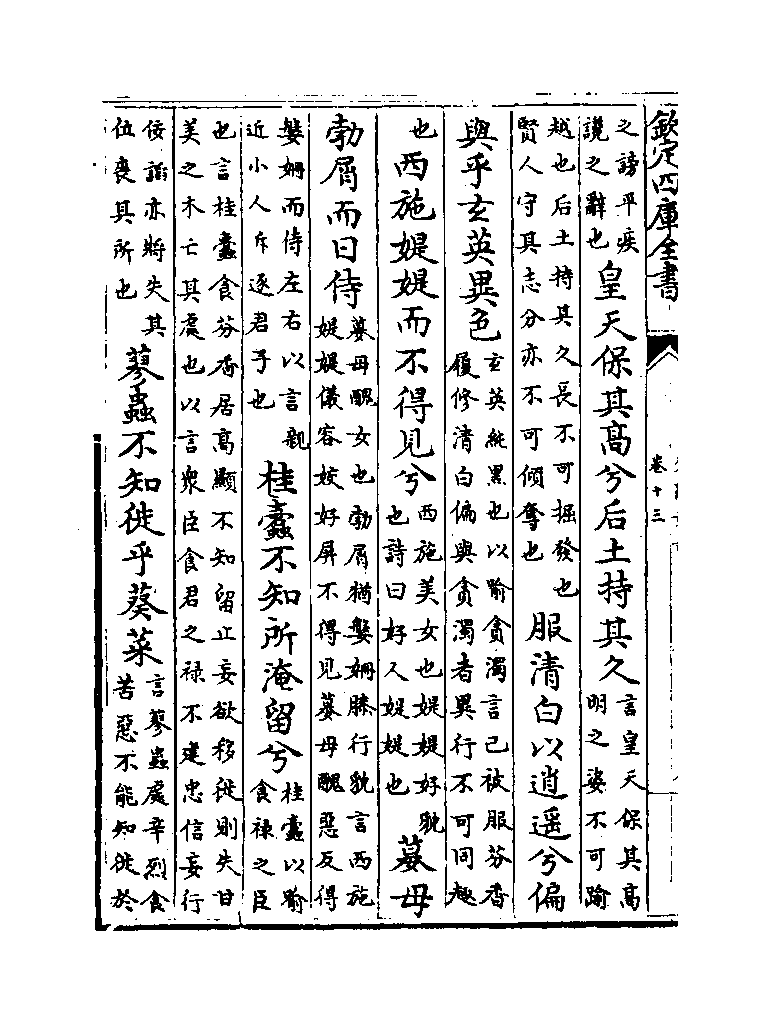 欽定四庫全書
卷十三
之謗平疾讒之辭也皇天保其高兮后土持其久言皇天保其高明之姿不可踰
越也后土持其久長不可掘發也賢人守其志分亦不可傾奪也服清白以逍遥兮偏
與乎玄英異色玄英純黑也以喻貪濁言己被服芬香履修清白偏與貪濁者異行不可同趣
也西施媞媞而不得見兮西施美女也媞媞好貌也詩曰好人媞媞也嫫母
勃屑而日侍嫫母醜女也勃屑猶媻姍膝行貌言西施媞媞儀容姣好屏不得見嫫母醜惡反得
媻姍而侍左右以言親近小人斥逐君子也桂蠧不知所淹留兮桂蠧以喻食禄之臣
也言桂蠧食芬香居高顯不知留止妄欲移徙則失甘美之木亡其處也以言衆臣食君之禄不建忠信妄行
佞諂亦將失其位喪其所也蓼蟲不知徙乎葵菜言蓼蟲處辛烈食苦惡不能知徙於